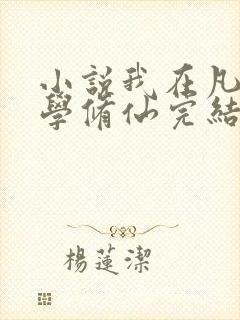 小說我在凡
學脩仙完結
楊蓮潔